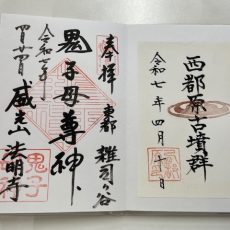 西都原古墳群
令和七年四月十日
奉拝
東都
雑司ヶ谷
鬼子母尊神
令和七年
四月廿四日
威光山
法明寺